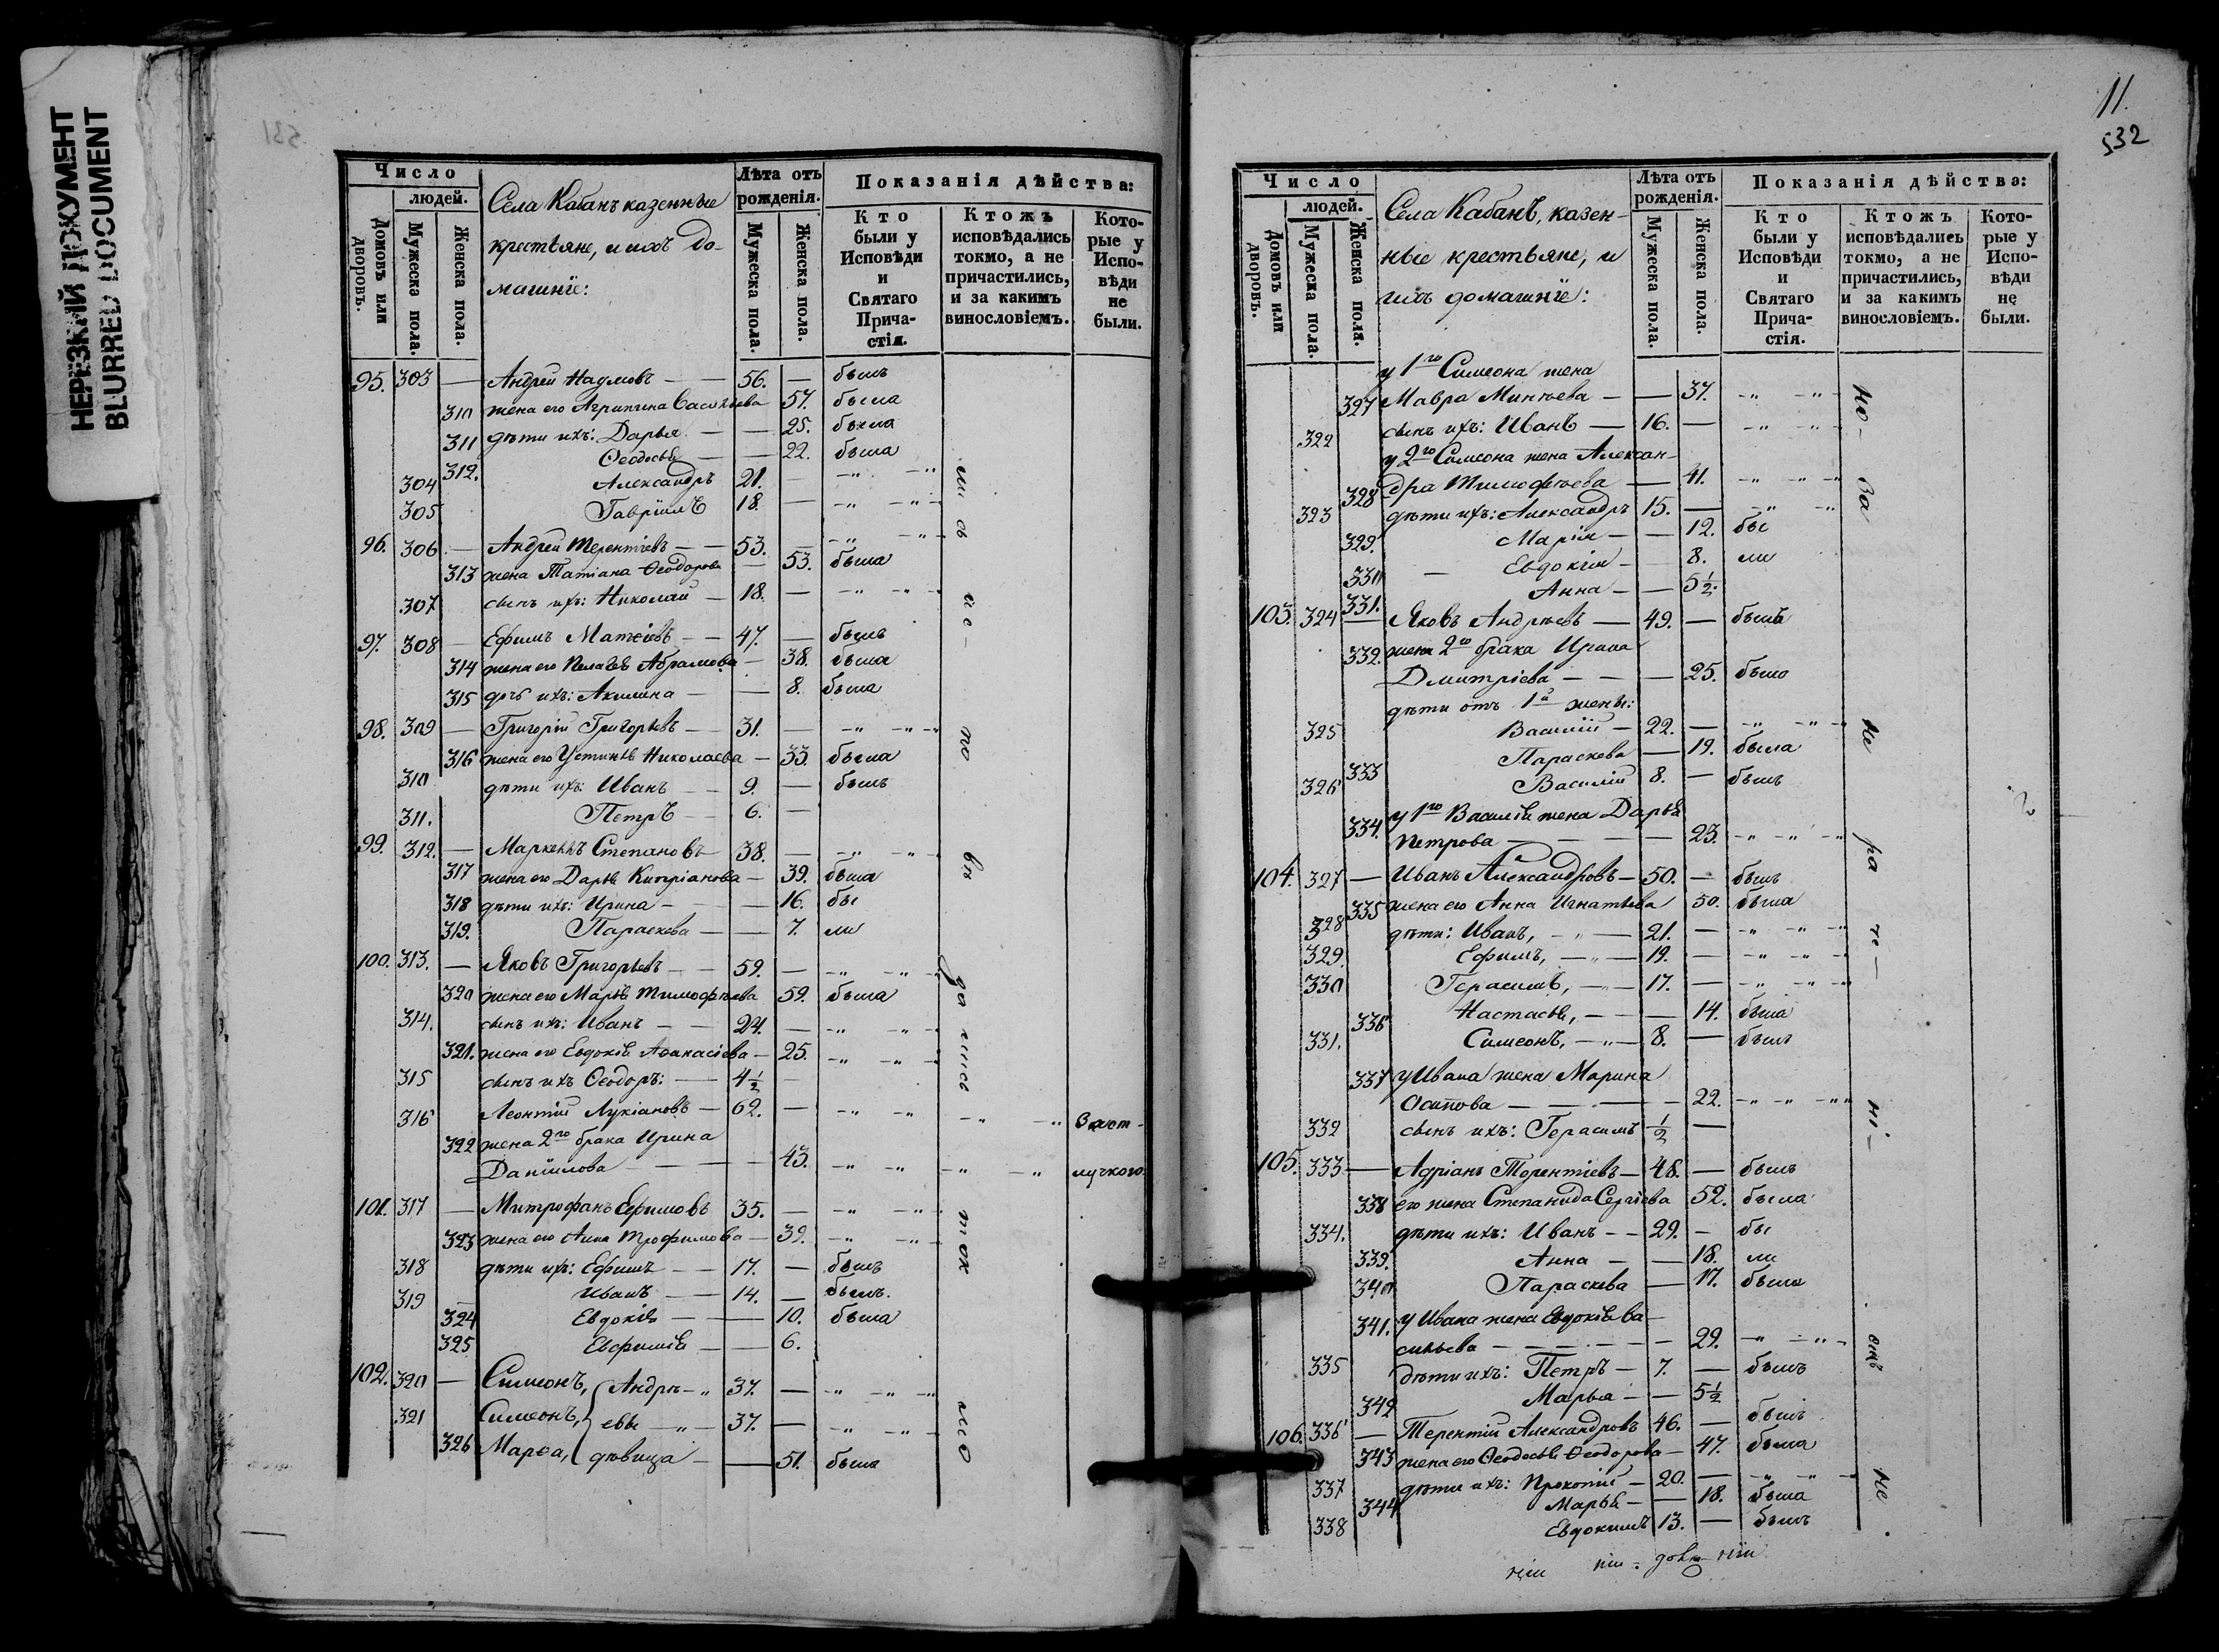 НЕРЕЗКИЙ ДОКУМЕНТ
BLURRED DOCUMENT
531
Число
людей.
Домовъ или дворовъ.
Мужеска пола.
Женска пола.
Села Кабанъ казенные
крестьяне, и ихъ до-
машніе:
Лѣта отъ рожденія.
Мужеска пола.
Женска пола.
Показанія дѣйства:
Кто были у Исповѣди и Святаго Прича-стія.
Ктожъ исповѣдались токмо, а не причастились, и за какимъ винословіемъ.
Кото-рые у Испо-вѣди не были.
95. 303 — Андрей Наумовъ — 56. — былъ
310 жена его Агрипина Васильева 57. была
311 дѣти ихъ: Дарья — 25. была
312. Ѳеодосія — 22. была
304 Александръ 21. — -„- -„-
305 Гавріилъ 18. — -„- -„-
96. 306 — Андрей Терентіевъ — 53. — -„- -„-
313 жена Татіана Ѳеодорова — 53. была
307 сынъ ихъ: Николай — 18. — -„- -„-
97. 308 — Ефимъ Матѳіевъ — 47. — былъ
314 жена его Пелагія Абрамова — 38. была
315 дочь ихъ: Акилина — 8. была
98. 309 — Григорій Григорьевъ — 31. — -„- -„-
316 жена его Устинія Николаева — 33. была
310 дѣти ихъ: Иванъ — 9. — былъ
311. Петръ — 6. —
99. 312. — Маркеллъ Степановъ 38. — -„- -„-
317 жена его Дарья Кипріанова — 39. была
318 дѣти ихъ: Ирина — 16. бы
319. Параскева — 7. ли
100. 313. — Яковъ Григорьевъ — 59. — -„- -„-
320 жена его Марья Тимофѣева 59. была
314. сынъ ихъ: Иванъ — 24. — -„- -„-
321. жена его Евдокія Аѳанасіева — 25. -„- -„-
315 сынъ ихъ Ѳеодоръ: — 4½ —
316 Леонтій Лукіановъ — 62. — -„- -„- -„- -„- За от-
322 жена 2го брака Ирина
Даніилова — 43. -„- -„- -„- -„- лучкою
101. 317 — Митрофанъ Ефимовъ 35. — -„- -„-
323 жена его Анна Трофимова — 39. -„- -„-
318 дѣти ихъ: Ефимъ — 17. — былъ
319 Иванъ — 14. — былъ.
324 Евдокія — 10. была
325 Евфимія — 6.
102. 320 — Симеонъ, Андрѣ- 37. — -„- -„-
321 Симеонъ, евы — 37. — -„- -„-
326 Марѳа, дѣвица — 51. была
11.
532
Число
людей.
Домовъ или дворовъ.
Мужеска пола.
Женска пола.
Села Кабанъ, казен-
ные крестьяне, и
ихъ домашніе:
Лѣта отъ рожденія.
Мужеска пола.
Женска пола.
Показанія дѣйства:
Кто были у Исповѣди и Святаго Прича-стія.
Ктожъ исповѣдались токмо, а не причастились, и за какимъ винословіемъ.
Кото-рые у Испо-вѣди не были.
у 1го Симеона жена
327 Мавра Минѣева — 37. -„- -„-
322 сынъ ихъ: Иванъ — 16. — -„- -„-
у 2го Симеона жена Алексан-
328 дра Тимофѣева — 41. -„- -„-
323 дѣти ихъ: Александръ 15. — -„- -„-
329. Марія — 12. бы
330 Евдокія — 8. ли
331. Анна — 5½.
103. 324 — Яковъ Андрѣевъ — 49. — былъ
332. жена 2го брака Ирина
Дмитріева — 25. была
дѣти отъ 1й жены:
325 Василій — 22. — -„- -„-
333 Параскева — 19. была
326 Василій 8. — былъ
334. у 1го Василія жена Дарья
Петрова — 23. -„- -„-
104. 327 — Иванъ Александровъ — 50. — былъ
335 жена его Анна Игнатьева 50. была
328 дѣти: Иванъ, — 21. — -„- -„-
329. Ефимъ, — 19. — -„- -„-
330 Герасимъ, — 17. — -„- -„-
336 Настасія, — 14. была
331. Симеонъ, — 8. — былъ
337 у Ивана жена Марина
Осипова — 22. -„- -„-
332 сынъ ихъ: Герасимъ ½ —
105. 333 — Адріанъ Терентіевъ — 48. — былъ
338 его жена Степанида Сергіева 52. была
334. дѣти ихъ: Иванъ — 29. — бы
339. Анна — 18. ли
340 Параскева — 17. была
341. у Ивана жена Евдокія Ва-
сильева — 29. -„- -„-
335 дѣти ихъ: Петръ — 7. — былъ
342 Марья — 5½
106. 336 — Терентій Александровъ 46. — былъ
343 жена его Ѳеодосія Ѳеодорова — 47. была
337 дѣти ихъ: Прокопій — 20. — -„- -„-
344 Марья — 18. была
338 Евдокимъ 13. — былъ